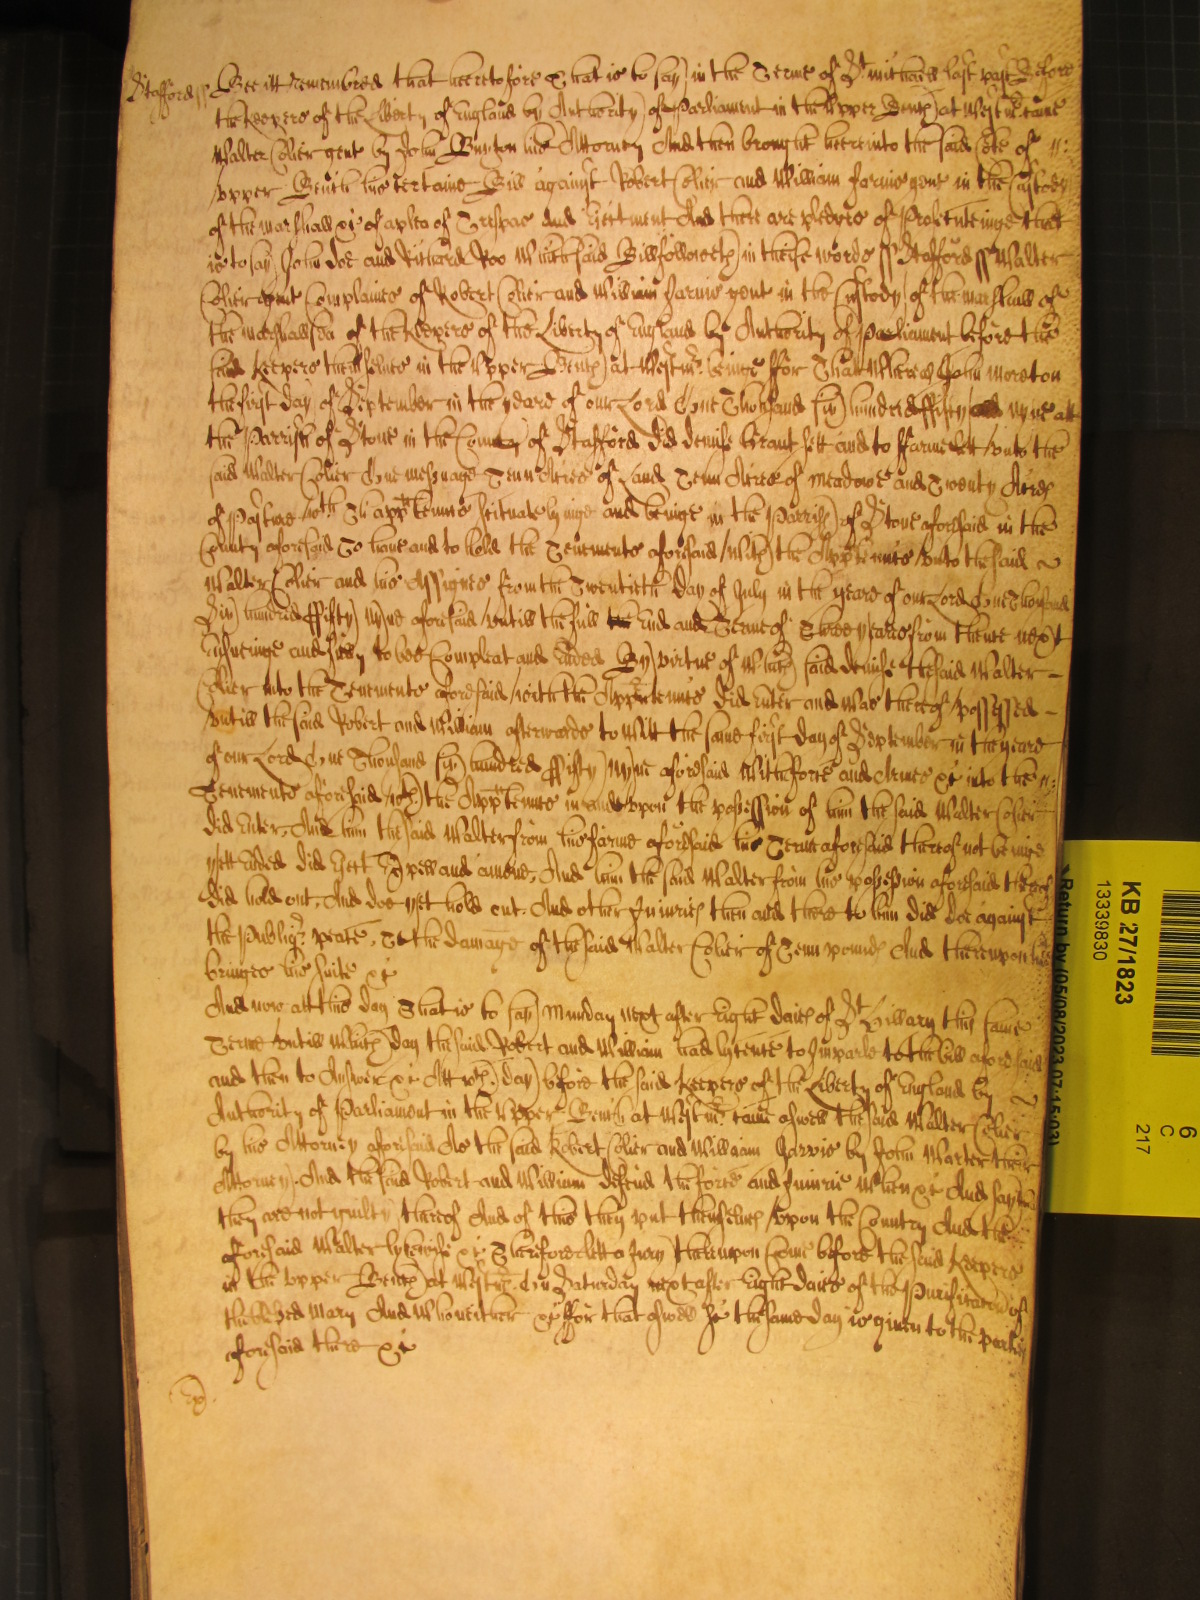 Stafford ss Bee itt remembred that heeretofore That is to say in the Terme of St Michaell last past Before
the keepers of the Liberty of England by Authority of Parliament in the Upper Bench at Westmr. came
Walter Colier gent by John Burton his Attorney And then brought heere into the said Cote of
upper Bench his certaine Bill against Robert Colier and William Jarvis gent in the Custody
of the marshall &c of a plea of Trespas and Eiectment And there are pledges of Prosecuteinge that
is to say John Doe and Richard Roo Which said Bill followeth in theise words ss Stafford ss Walter
Colier gent Complaines of Robert Colier and William Jarvis gent in the Custody of the marshall of
the marshallsea of the Keepers of the Liberty of England by Authority of Parliament before the
said Keepers themselves in the Upper Bench at Westmr. beinge ffor That Whereas John Moreton
the first day of September in the yeare of our Lord One Thousand six hundred ffifty and nyne att
the Parrish of Stone in the County of Stafford did demise Graunt sett and to ffarme lett unto the
said Walter Colier One messuage Tenn Acres of Land Tenn Acres of meadowe and Twenty Acres
of Pasture wth Th'apptennces scituate lyinge and beinge in the Parrish of Stone aforesaid in the
County aforesaid To have and to hold the Tenements aforesaid With the Apptennces unto the said
Walter Colier and his Assignes from the Twentieth day of July in the yeare of our Lord One Thousand
Six hundred ffifty nyne aforesaid untill the full end and Terme of Three yeares from thence next
ensueinge and fully to bee Compleat and ended By virtue of Which said demise the said Walter
Colier into the Tenements aforesaid with the Apptennces did enter and was thereof possessed
untill the said Robert and William afterwards to Witt the same first day of September in the yeare
of our Lord One Thousand six hundred ffifty nyne aforesaid With force and Armes &c into the
Tenements aforesaid wth the Apptennces in and upon the possession of him the said Walter Colier
did enter. And him the said Walter from his farme aforesaid his Terme aforesaid thereof not beinge
yett ended did Eiect Expell and amove. And him the said Walter from his possession aforesaid thereof
did hold out. And doe yet hold out. And other Iniuries then and there to him did doe against
the Publiq. peace. To the damage of the said Walter Colier of Tenn pounds And thereupon hee
bringes his suite &c
And now att this day That is to say Munday next after Eight daies of St Hillary this same
Terme untill Which day the said Robert and William had lycence to Imparle to the bill aforesaid
and then to Answer &c Att wch. day before the said Keepers of the Liberty of England by
Authority of Parliament in the Upper Bench at Westmr. came aswell the said Walter Colier
by his Attorney aforesaid As the said Robert Colier and William Jarvis by John Marter their
Attorney. And the said Robert and William defend the force and Iniurie When &c And say
they are not guilty thereof And of this they put themselves upon the Country And the
aforesaid Walter lykewise &c Therefore lett a Jury thereupon Come before the said Keepers
in the upper Bench at Westmr. on Saturday next after Eight daies of the Purificacon of
the blessed Mary And Who neither &c ffor that aswell &c the same day is given to the parties
aforesaid there &c
KB 27/1823
13339830
Return by (05/08/2023 07:15:03)
6
C
217